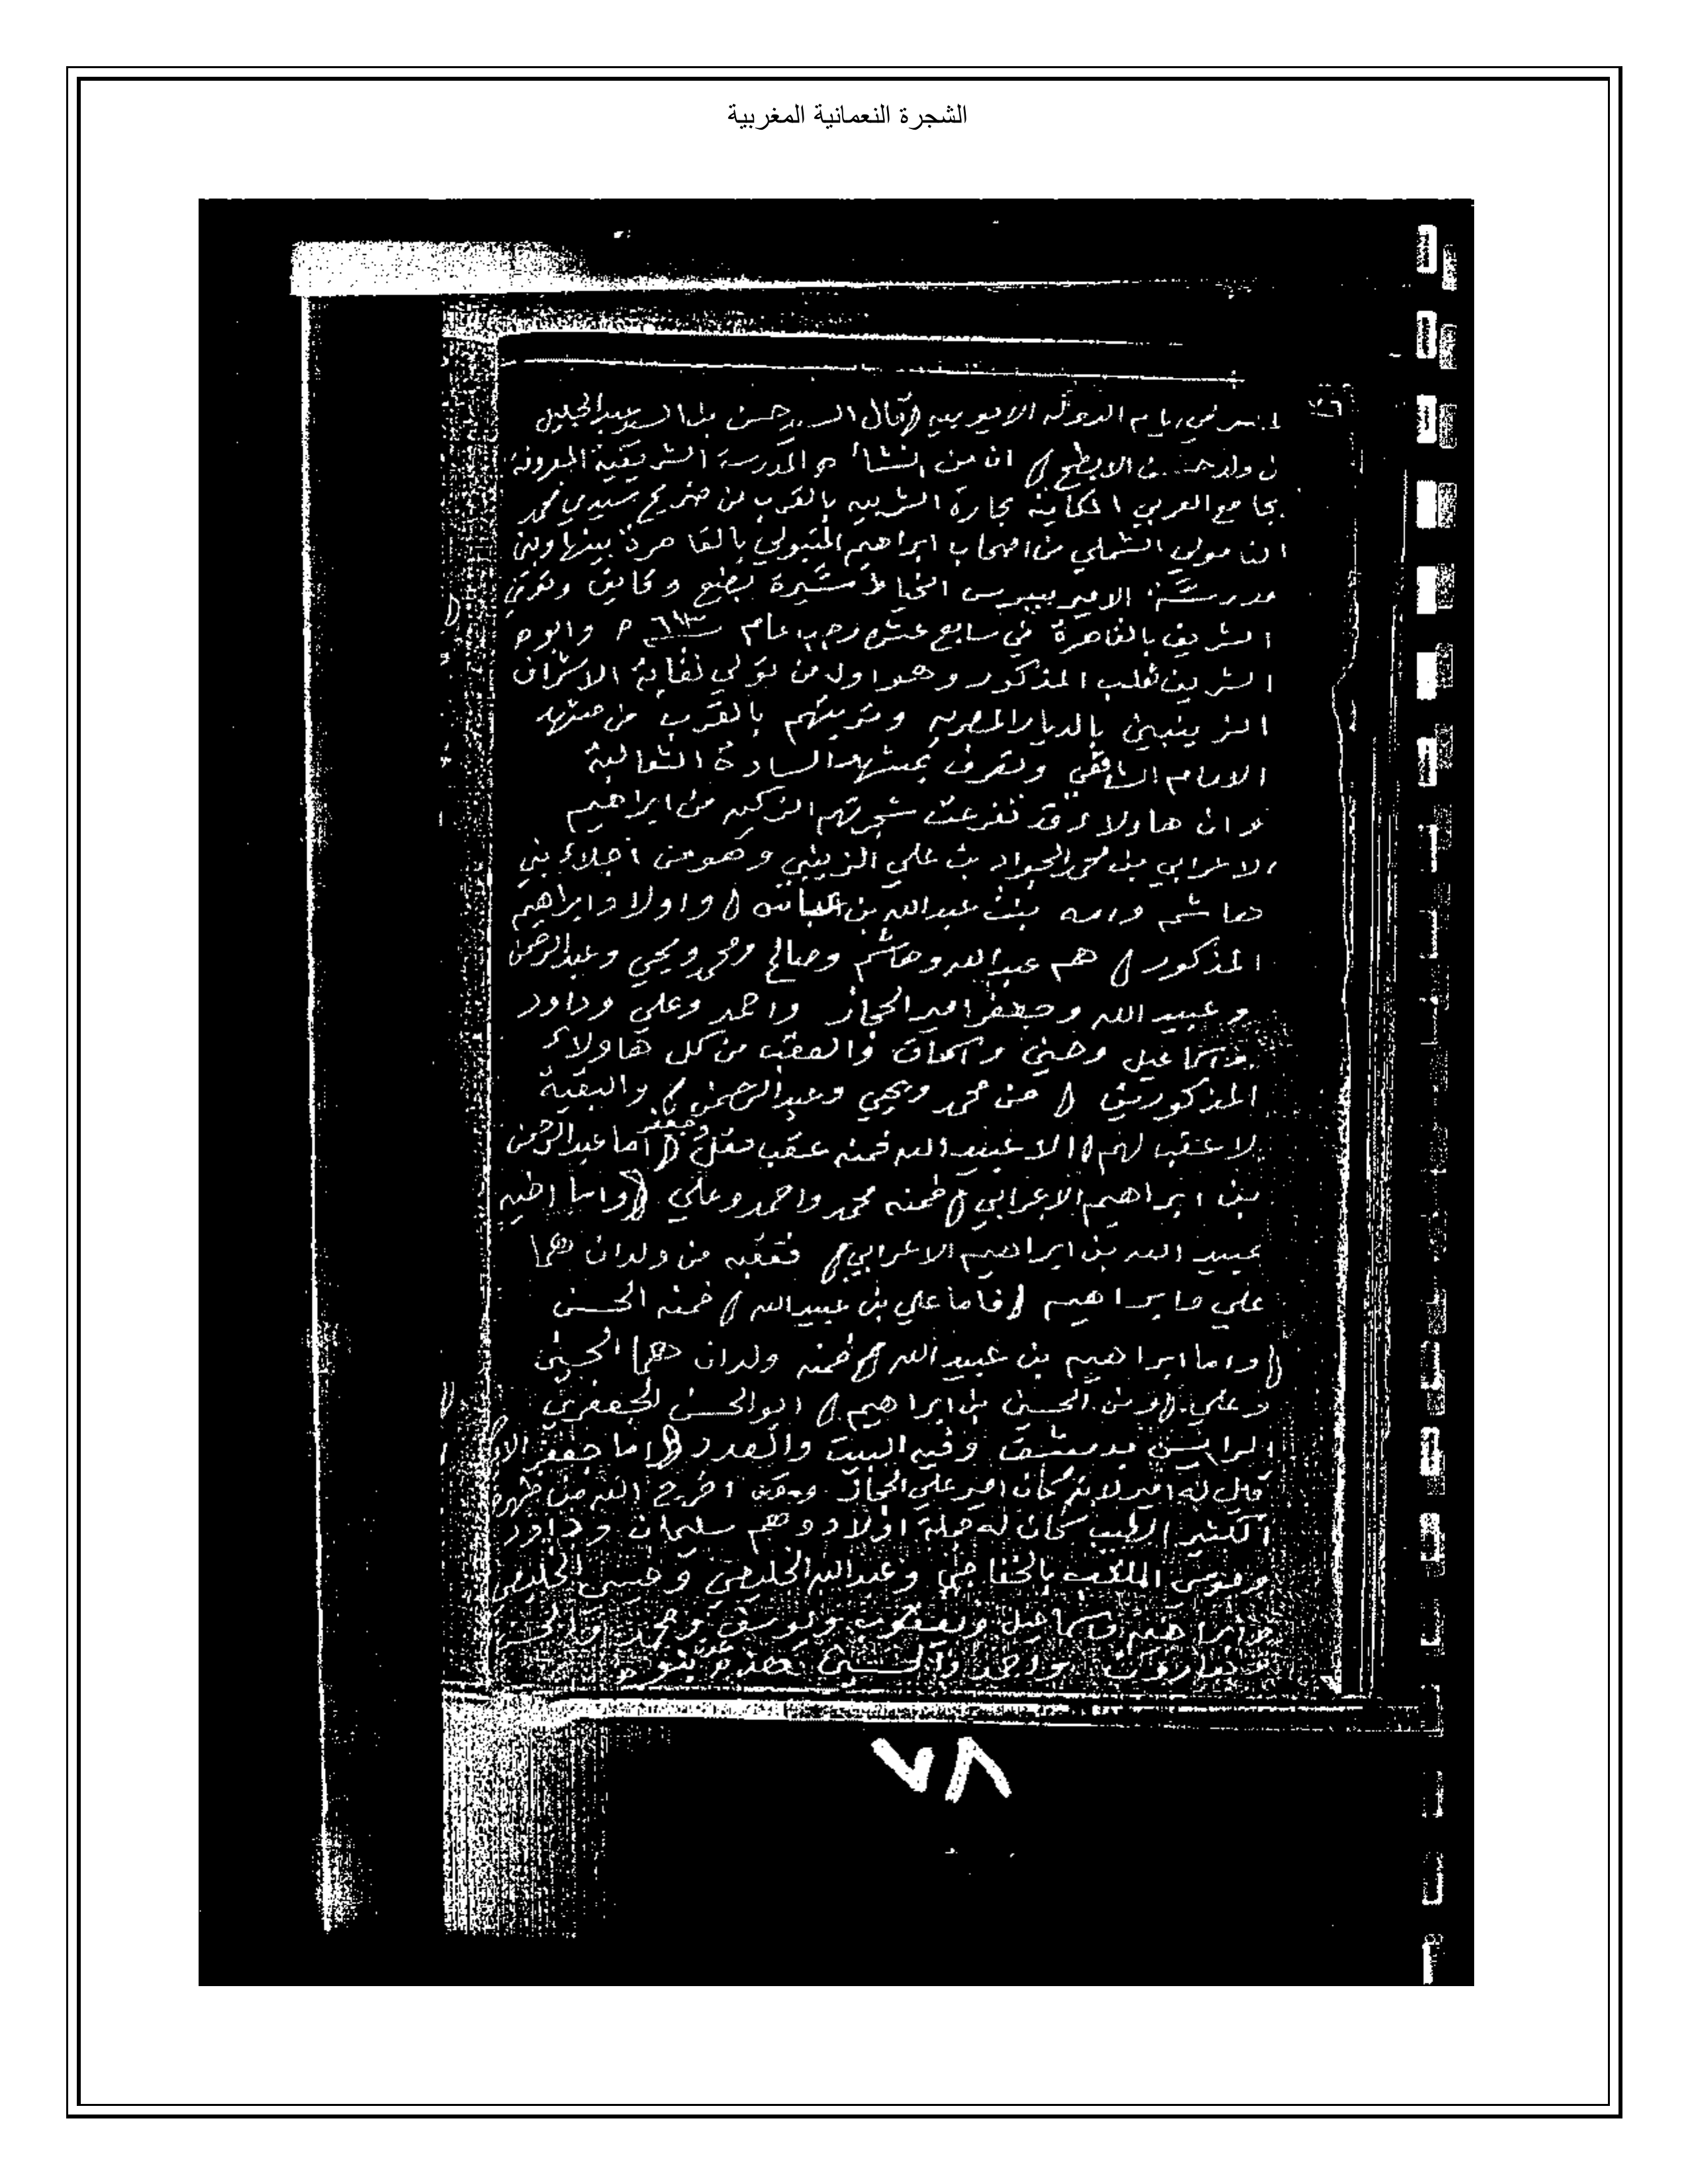 الشجرة النعمانية المغربية
٧٦
بمصر في ايام الدوله الايوبيه قال السيد حسن بن السيد عبدالجليل
ن ولد حسن الابطح ان من انشائهم المدرسة الشريفية المعروفه
بجامع العربي الكاينه بحارة الشربيه بالقرب من ضريح سيدي محمد
ابن مولي الشملي من اصحاب ابراهيم المتبولي بالقاهرة بينها وبين
مدرسة الامير بيبرس الخياط مسيرة بضع دقايق وتوفي
الشريف بالقاهرة في سابع عشر رجب عام ٦١٣ ه وابوه
الشريف ثعلب المذكور وهو اول من تولي نقابة الاشراف
الزينبين بالديار المصريه وتربتهم بالقرب من مشهد
الامام الشافعي وتعرف بمشهد السادة الثعالبة
وان هاولاء قد تفرعت شجرتهم الزكيه من ابراهيم
الاعرابي بن محمد الجواد بن علي الزينبي وهو من اجلاء بني
هاشم وامه بنت عبدالله بن عباس واولاد ابراهيم
المذكور هم عبدالله وهاشم وصالح ومحمد ويحيي وعبدالرحمن
وعبيد الله وجعفر امير الحجاز واحمد وعلي وداود
واسماعيل وحسين واسحاق والعقب من كل هاولاء
المذكورين من محمد ويحيي وعبدالرحمن والبقية
لا عقب لهم الا عبيد الله فمنه عقب وجعفر اما عبدالرحمن
بن ابراهيم الاعرابي فمنه محمد واحمد وعلي واما
عبيد الله بن ابراهيم الاعرابي فعقبه من ولدان هما
علي وابراهيم فاما علي بن عبيدالله فمنه الحسن
واما ابراهيم بن عبيد الله فمنه ولدان هما الحسين
وعلي ومن الحسين بن ابراهيم ابوالحسن الجعفري
الرايس بدمشق وفيه البيت والعدد اما جعفر الامير
قيل له امير لانه كان امير علي الحجاز وقد اخرج الله من ظهره
الكثير الطيب كان له جملة اولاد وهم سليمان وداود
وموسي الملقب بالخفاجي وعبدالله الخليصي وعيسي الخليصي
وابراهيم واسماعيل ويعقوب ويوسف ومحمد والحسن
وهارون واحمد والحسين هذه بنوه
٧٨